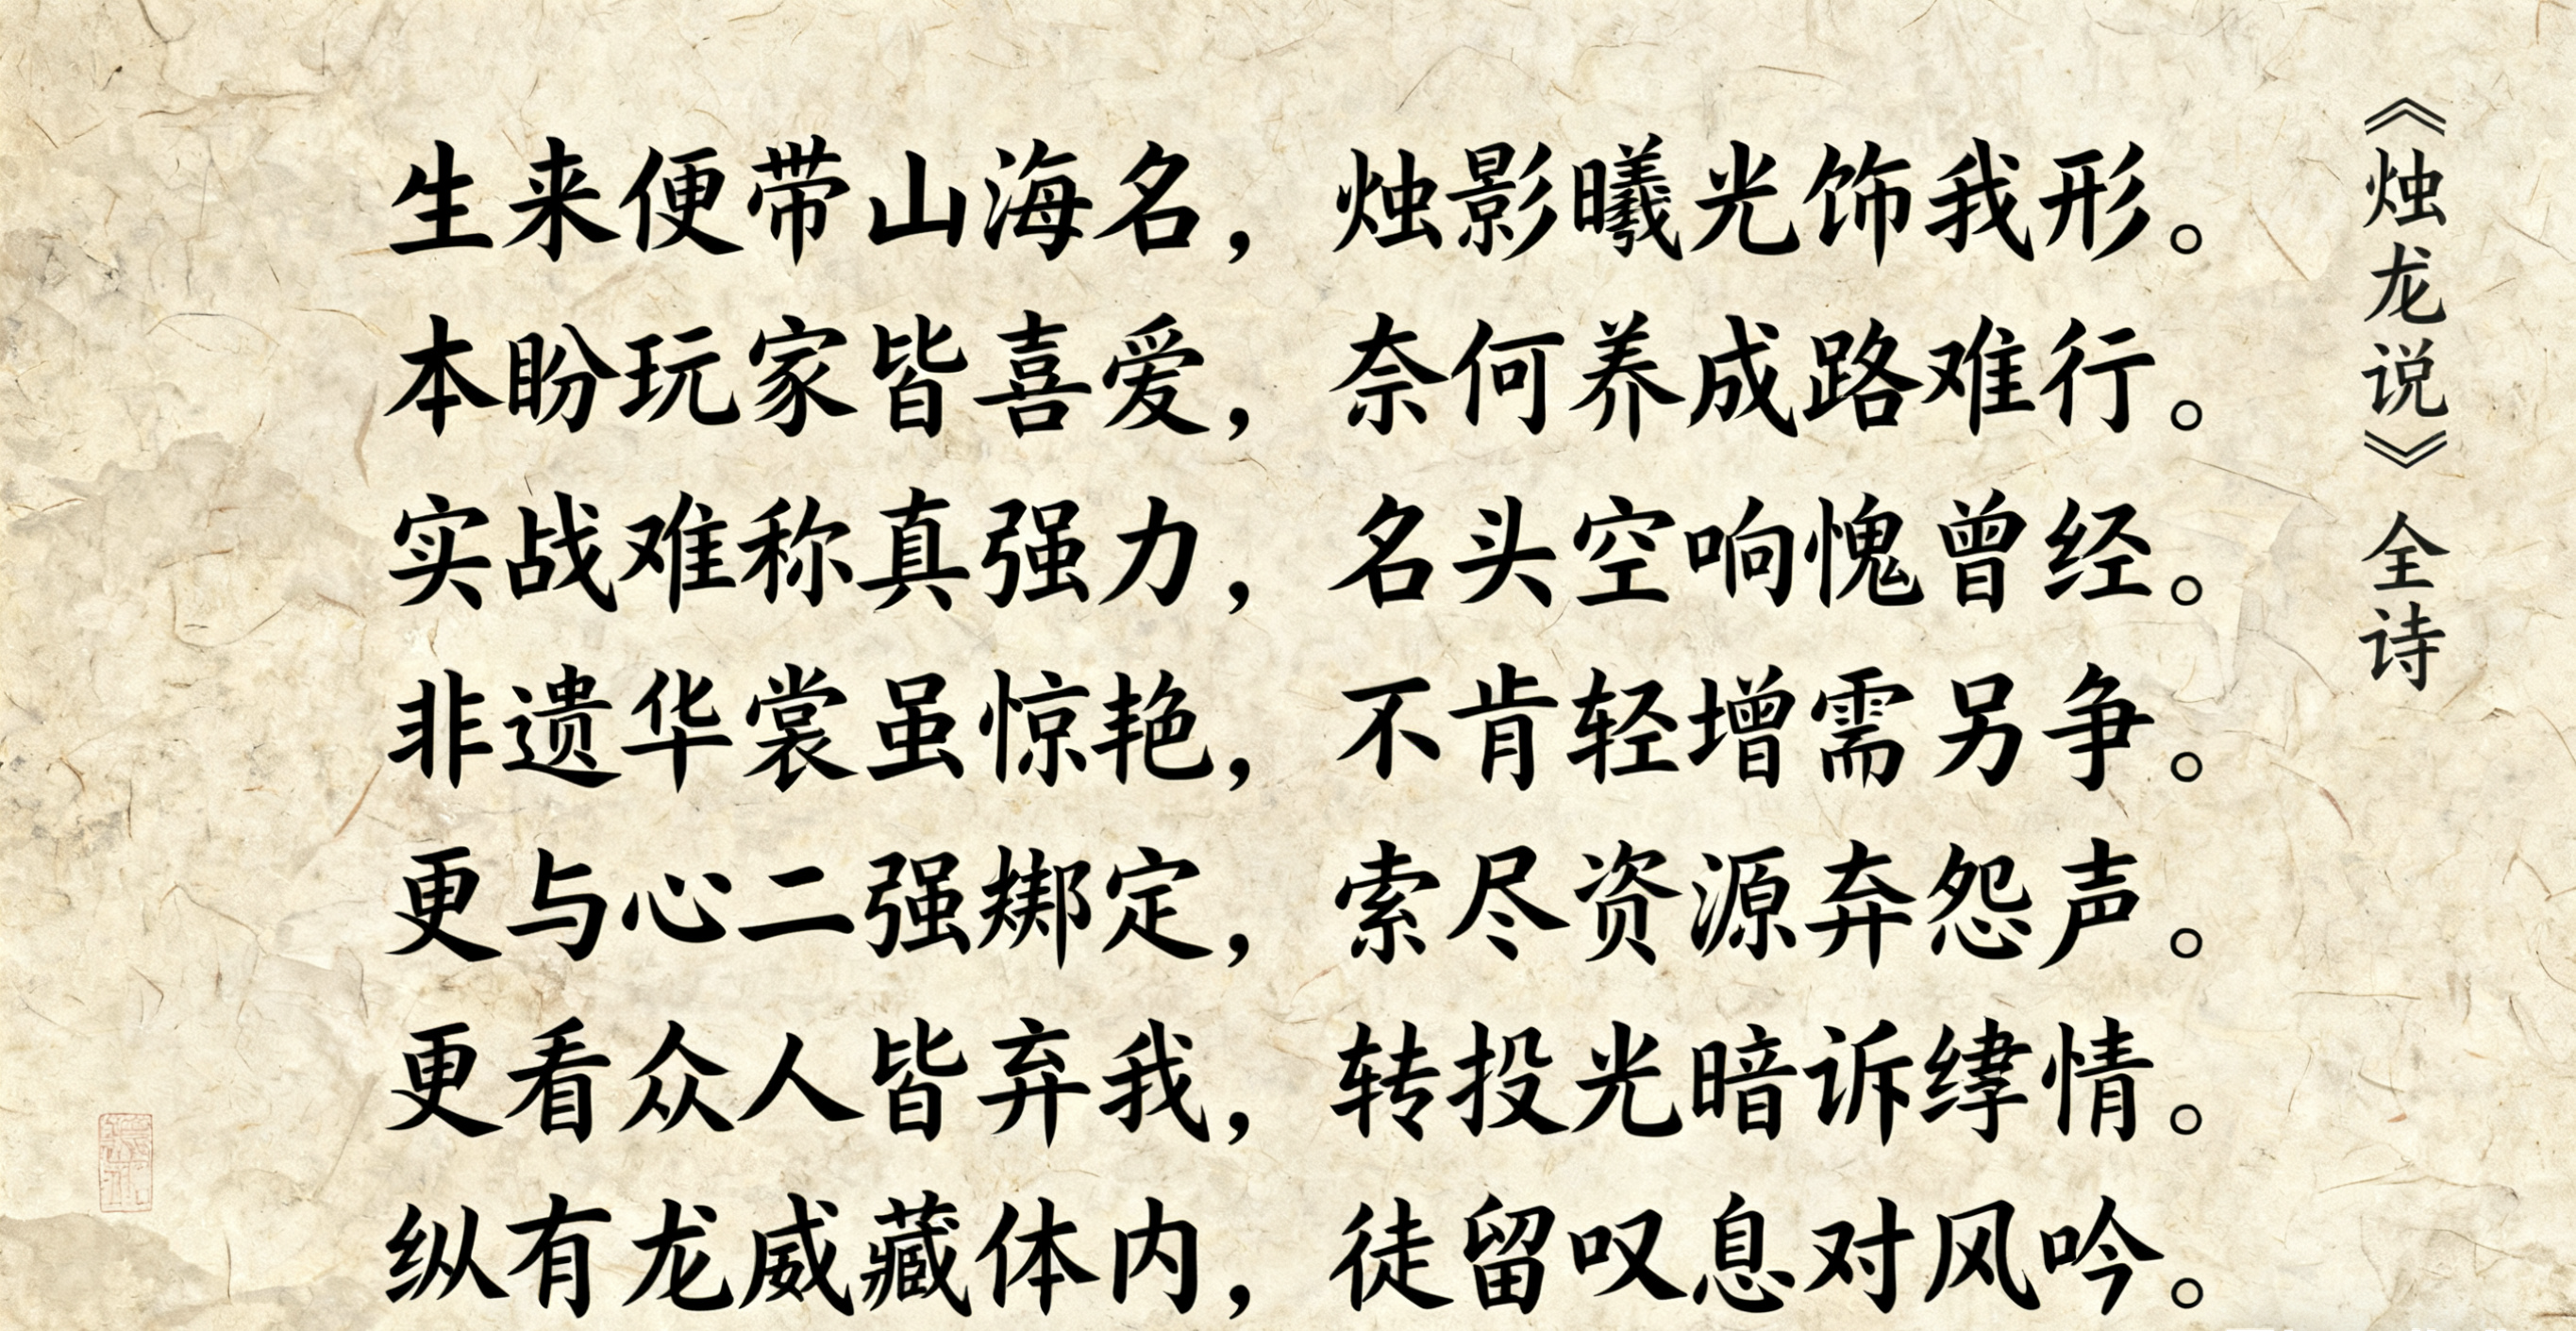 《烛龙说》全诗
生来便带山海名，烛影曦光饰我形。
本盼玩家皆喜爱，奈何养成路难行。
实战难称真强力，名头空响愧曾经。
非遗华裳虽惊艳，不肯轻增需另争。
更与心二强绑定，索尽资源弃怨声。
更看众人皆弃我，转投光暗诉情。
纵有龙威藏体内，徒留叹息对风吟。